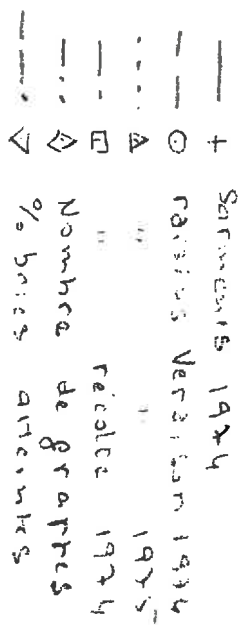 Sarments 1974
raisins Version 1974
" " 1975
" récolte 1974
Nombre de grappes
% baies atteintes